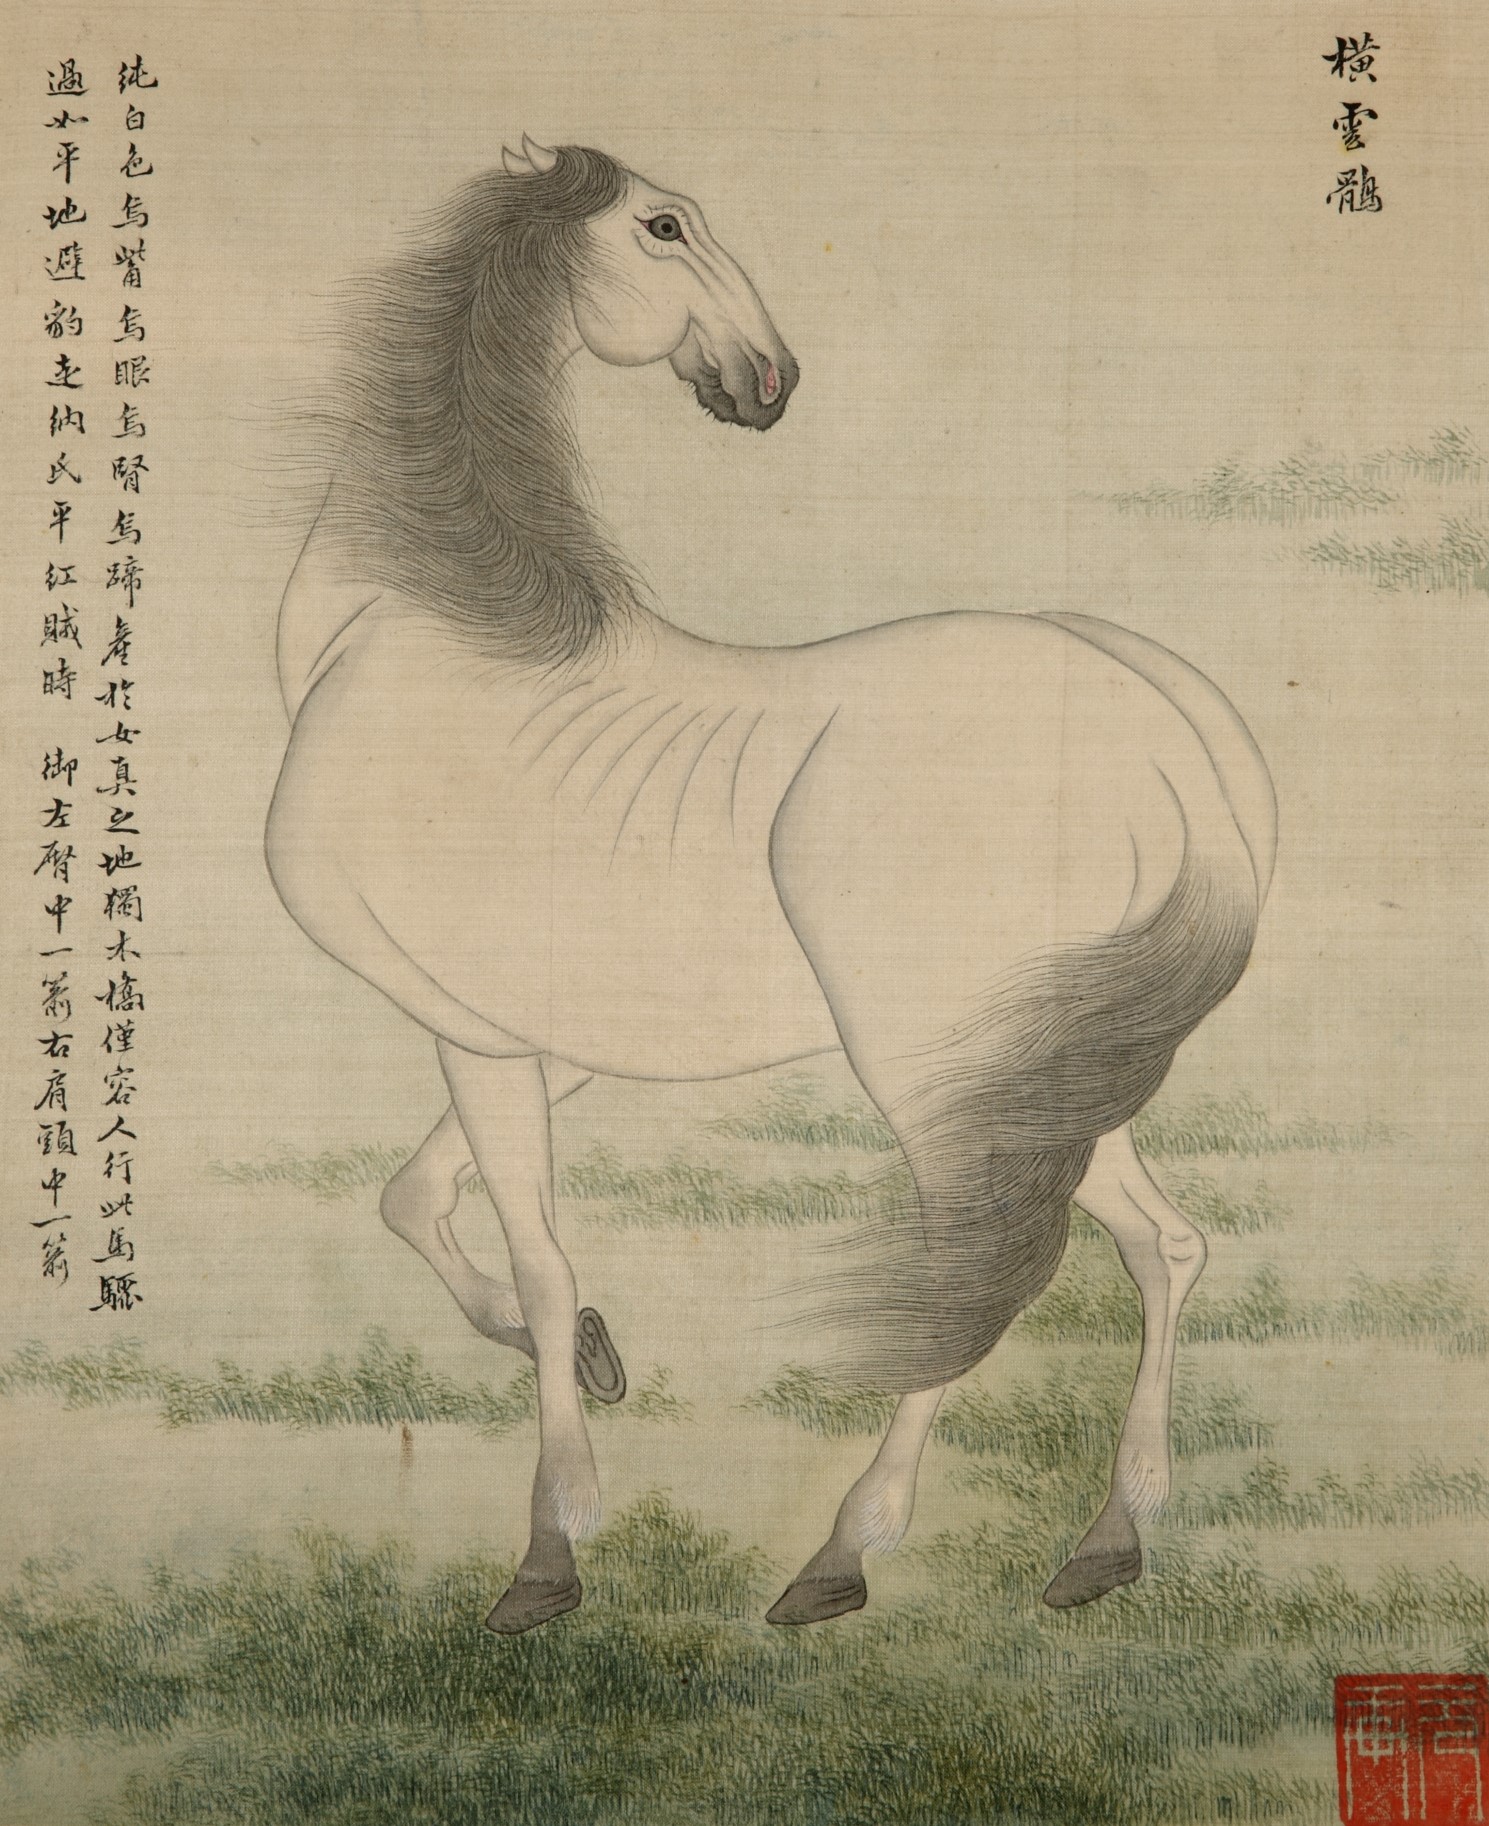 橫雲鶻
純白色烏觜烏眼烏腎烏蹄產於女真之地獨木橋僅容人行此馬驟
過如平地避豹走納氏平紅賊時 御左臂中一箭右肩頭中一箭